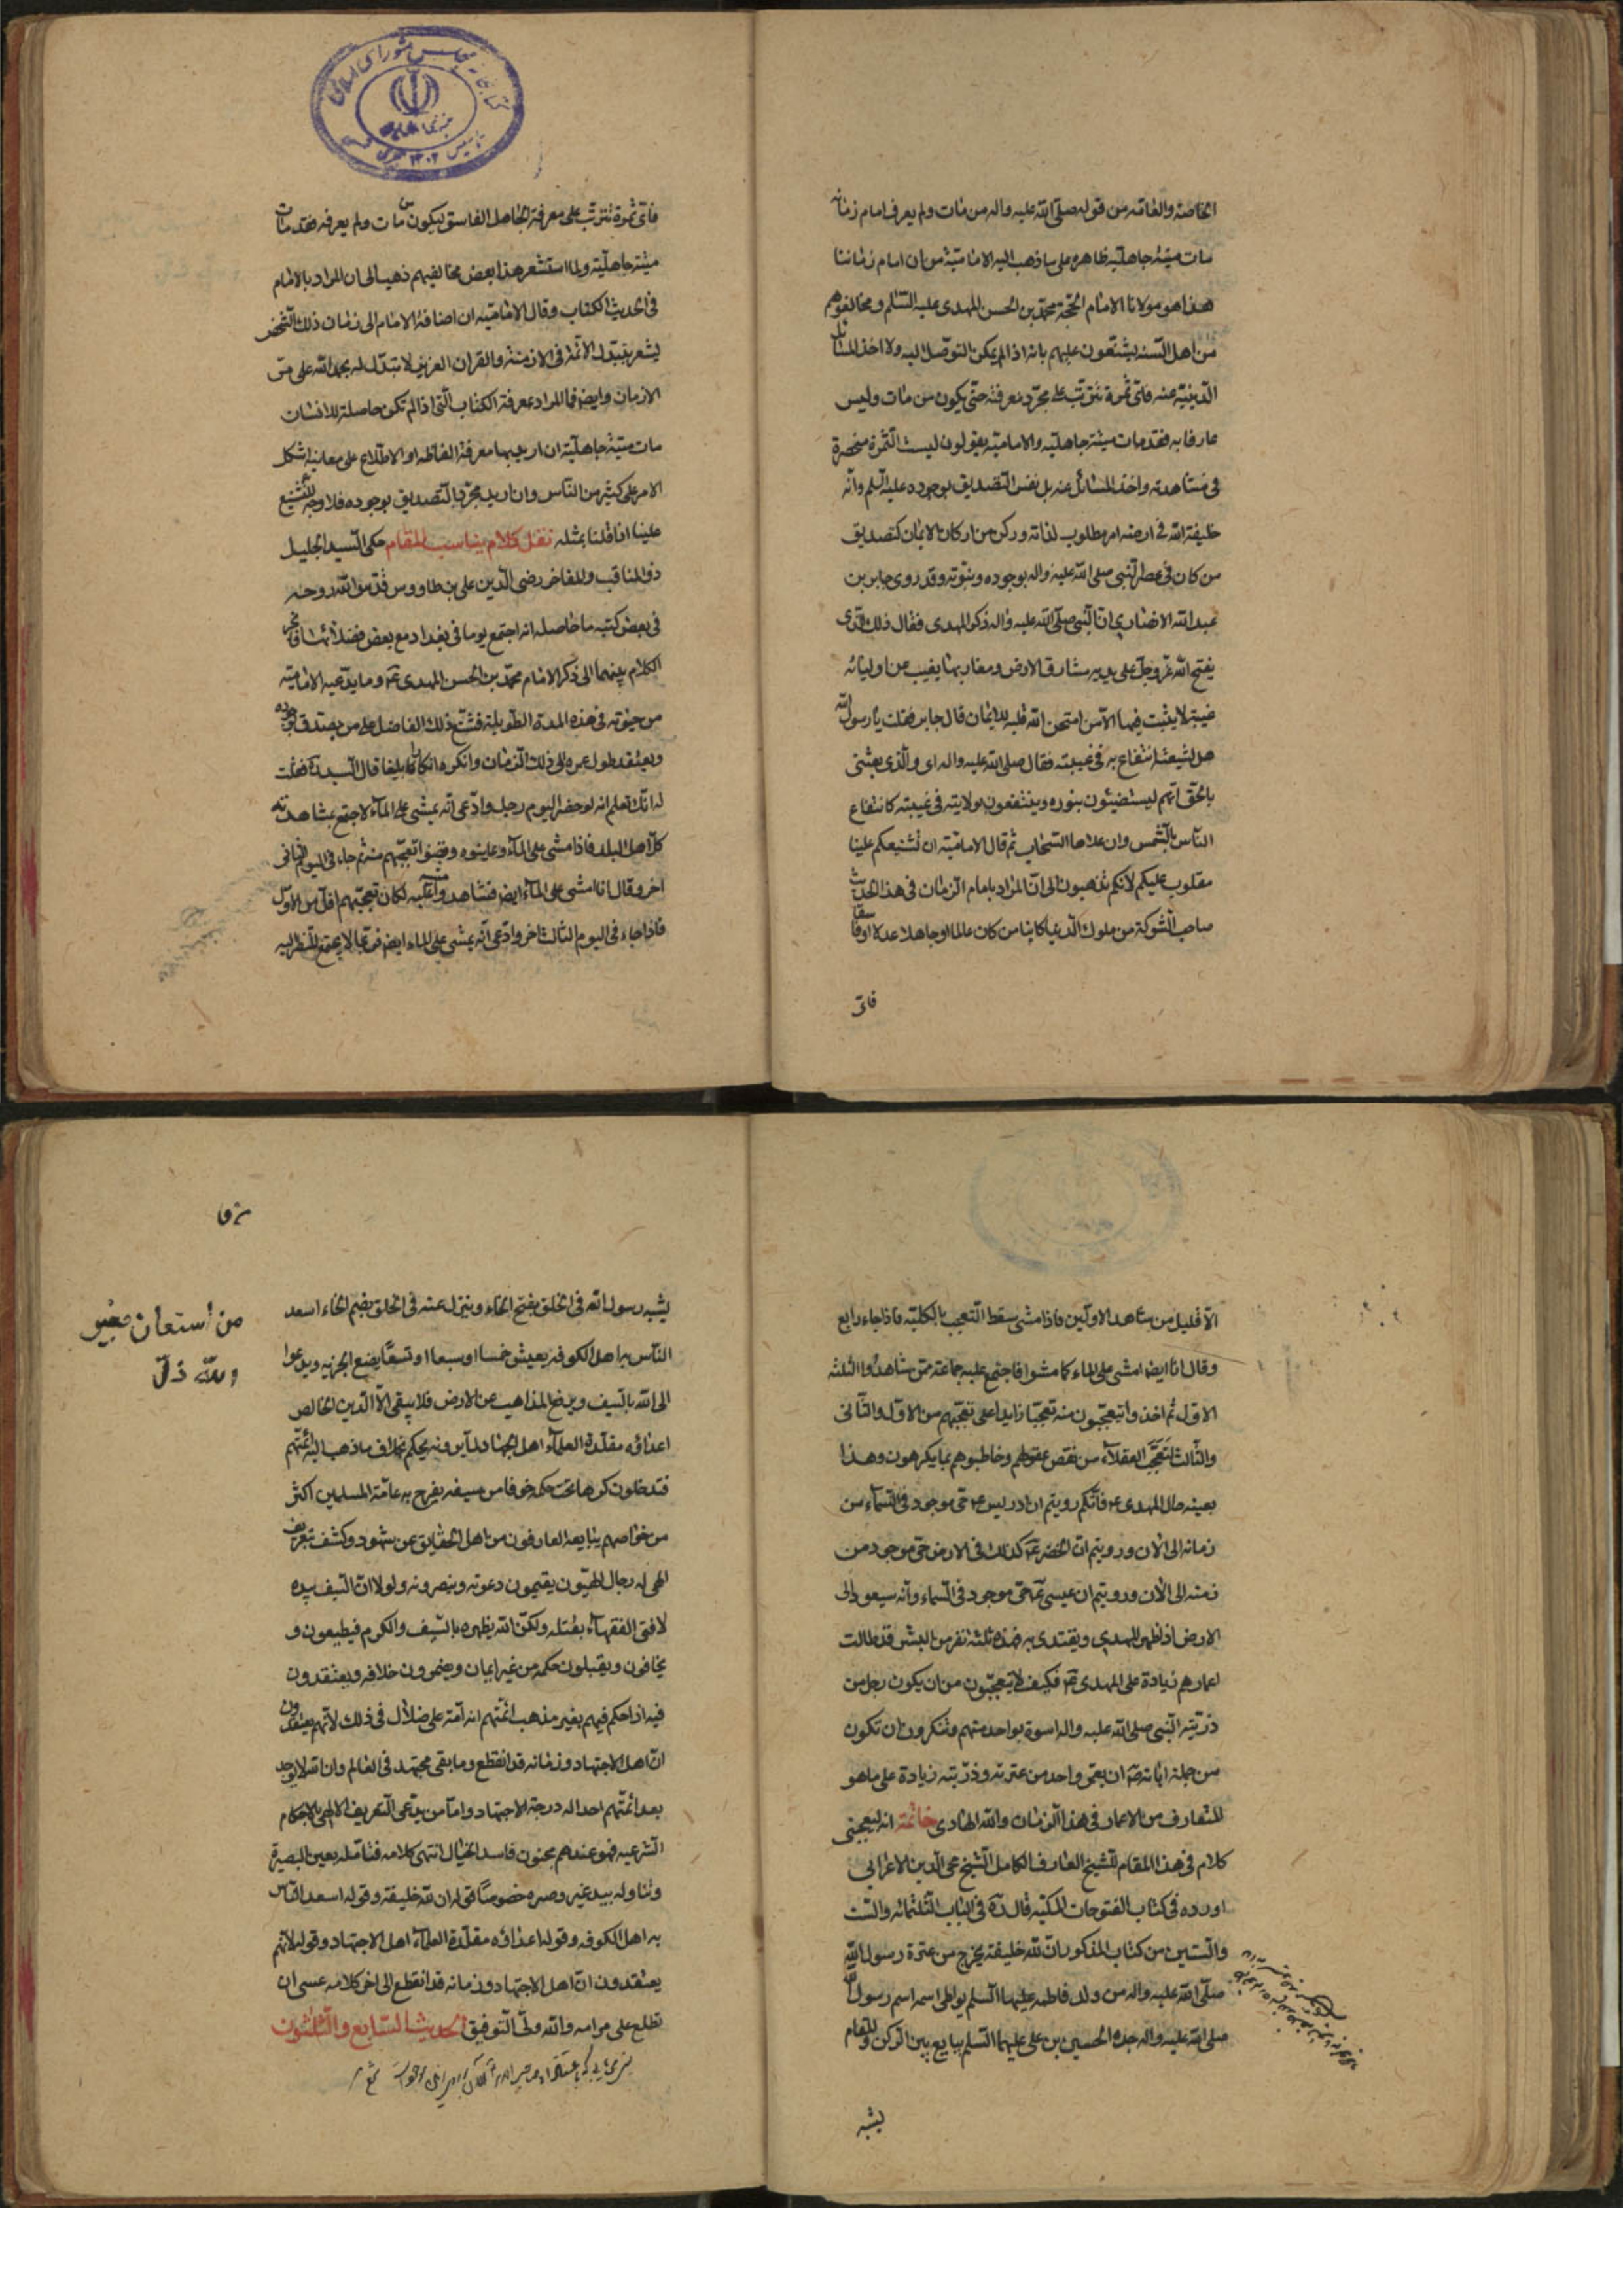 الخاصة والعامه من قوله صلى الله عليه واله من مات ولم يعرف امام زمانه
مات ميتة جاهلية ظاهره على ما ذهب اليه الامامية من ان امام زماننا
هذا هو مولانا الامام الحجة محمد بن الحسن المهدى عليه السلام ومخالفوهم
من اهل السنه يشنعون عليهم بانه اذا لم يمكن التوصل اليه ولا اخذ المسائل
الدينية عنه فاى ثمرة تترتب على مجرد معرفته حتى يكون من مات وليس
عارفا به فقد مات ميتة جاهليه والامامية يقولون ليست الثمرة منحصرة
فى مشاهدته واخذ المسائل عنه بل نفس التصديق بوجوده عليه السلم وانه
خليفة الله فى ارضه امر مطلوب لذاته وركن من اركان الايمان كتصديق
من كان فى عصر النبى صلى الله عليه واله بوجوده ونبوته وقد روى جابر بن
عبد الله الانصارى ان النبى صلى الله عليه واله ذكر المهدى فقال ذلك الذى
يفتح الله عز وجل على يديه مشارق الارض ومغاربها يغيب عن اوليائه
غيبة لا يثبت فيها الا من امتحن الله قلبه للايمان قال جابر فقلت يا رسول الله
هل لشيعته انتفاع به فى غيبته فقال صلى الله عليه واله اى والذى بعثنى
بالحق انهم ليستضيئون بنوره وينتفعون بولايته فى غيبته كانتفاع
الناس بالشمس وان علاها السحاب ثم قال الامامية ان تشنيعكم علينا
مقلوب عليكم لانكم تذهبون الى ان المراد بامام الزمان فى هذا الحديث
صاحب الشوكة من ملوك الدنيا كاينا من كان عالما او جاهلا عدلا او فاسقا
فاى
فاى ثمرة تترتب على معرفة الجاهل الفاسق ليكون من مات ولم يعرفه فقد مات
ميتة جاهلية ولما استشعر هذا بعض مخالفيهم ذهب الى ان المراد بالامام
فى الحديث الكتاب وقال الامامية ان اضافة الامام الى زمان ذلك الشخص
يشعر بتبدل الائمة فى الازمنة والقران العزيز لا تبدل له بحمد الله على مر
الازمان وايضا فما المراد بمعرفة الكتاب التى اذا لم تكن حاصلة للانسان
مات ميتة جاهلية ان اريد بها معرفة الفاظه او الاطلاع على معانيه اشكل
الامر على كثير من الناس وان اريد مجرد التصديق بوجوده فلا وجه للتشنيع
علينا اذا قلنا بمثله نقل كلام يناسب المقام حكى السيد الجليل
ذو المناقب والمفاخر رضى الدين على بن طاووس قدس الله روحه
فى بعض كتبه ما حاصله انه اجتمع يوما فى بغداد مع بعض فضلائها فانجر
الكلام بينهما الى ذكر الامام محمد بن الحسن المهدى ع وما يدعيه الامامية
من حيوته فى هذه المدة الطويلة فشنع ذلك الفاضل على من يصدق بوجوده
ويعتقد طول عمره الى ذلك الزمان وانكره انكارا بليغا قال السيد ره فقلت
له انك تعلم انه لو حضر اليوم رجل وادعى انه يمشى على المآء لاجتمع لمشاهدته
كل اهل البلد فاذا مشى على المآء وعاينوه وقضوا تعجبهم منه ثم جاء فى اليوم الثانى
اخر وقال انا امشى على المآء ايضا فشاهدوا مشيه عليه لكان تعجبهم اقل من الاول
فاذا جاء فى اليوم الثالث اخر وادعى انه يمشى على الماء ايضا فربما لا يجتمع للنظر اليه
الا قليل ممن شاهد الاولين فاذا مشى سقط التعجب بالكلية فاذا جاء رابع
وقال انا ايضا امشى على الماء كما مشوا فاجتمع عليه جماعة ممن شاهدوا الثلثه
الاول ثم اخذوا يتعجبون منه تعجبا زايدا على تعجبهم من الاول والثانى
والثالث لتعجب العقلاء من نقص عقولهم وخاطبوهم بما يكرهون وهذا
بعينه حال المهدى ع فانكم رويتم ان ادريس ع حى موجود فى السماء من
زمانه الى الان ورويتم ان الخضر ع كذلك فى الارض حى موجود من
زمنه الى الان ورويتم ان عيسى ع حى موجود فى السماء وانه سيعود الى
الارض اذا ظهر المهدى ويقتدى به فهذه ثلثة نفر من البشر قد طالت
اعمارهم زيادة على المهدى ع فكيف لا تتعجبون من ان يكون رجل من
ذرية النبى صلى الله عليه واله اسوة بواحد منهم وتنكرون ان تكون
من جملة اياته ص ان يعمر واحد من عترته وذريته زيادة على ما هو
المتعارف من الاعمار فى هذا الزمان والله الهادى خاتمة انه ليعجبنى
كلام فى هذا المقام للشيخ العارف الكامل الشيخ محى الدين الاعرابى
اورده فى كتاب الفتوحات المكيه قال ره فى الباب الثلثمائه والست
والستين من كتاب المذكور ان لله خليفة يخرج من عترة رسول الله
صلى الله عليه واله من ولد فاطمه عليها السلم يواطى اسمه اسم رسول الله
صلى الله عليه واله جده الحسين بن على عليهما السلم يبايع بين الركن والمقام
يشبه
يشبه رسول الله فى الخلق بفتح الخاء وينزل عنه فى الخلق بضم الخاء اسعد
الناس به اهل الكوفه يعيش خمسا او سبعا او تسعا يضع الجزيه ويدعوا
الى الله بالسيف ويرفع المذاهب عن الارض فلا يبقى الا الدين الخالص
اعداؤه مقلدة العلمآء اهل الاجتهاد لما يرونه يحكم بخلاف ما ذهب اليه ائمتهم
فتدخلون كرها تحت حكمه خوفا من سيفه يفرح به عامة المسلمين اكثر
من خواصهم يبايعه العارفون من اهل الحقايق عن شهود وكشف بتعريف
الهى له رجال الهيون يقيمون دعوته وينصرونه ولولا ان السيف بيده
لافتى الفقهاء بقتله ولكن الله يظهره بالسيف والكرم فيطيعون و
يخافون ويقبلون حكمه من غير ايمان ويضمرون خلافه ويعتقدون
فيه اذا حكم فيهم بغير مذهب ائمتهم انه امة على ضلال فى ذلك لانهم يعتقدون
ان اهل الاجتهاد وزمانه قد انقطع وما بقى مجتهد فى العالم وان الله لا يوجد
بعد ائمتهم احدا له درجة الاجتهاد واما من يدعى التعريف الالهى بالاحكام
الشرعيه فهو عندهم مجنون فاسد الخيال انتهى كلامه فتامله بعين البصيرة
وتناوله بيد غير قصيره خصوصا قوله ان لله خليفة وقوله اسعد الناس
به اهل الكوفه وقوله اعداؤه مقلدة العلمآء اهل الاجتهاد وقوله لانهم
يعتقدون ان اهل الاجتهاد وزمانه قد انقطع الى اخر كلامه عسى ان
تطلع على مرامه والله ولى التوفيق الحديث السابع والثلثون
من استعان بغير
الله ذل